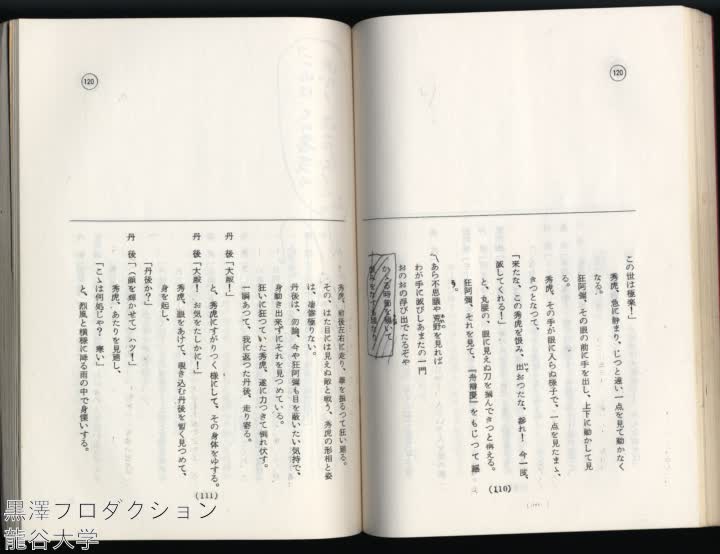 120
この世は極楽！」
秀虎、急に静まり、じつと遠い一点を見て動かなく
なる。
狂阿彌、その眼の前に手を出し、上下に動かして見
る。
秀虎、その手が眼に入らぬ様子で、一点を見たまゝ、
きつとなつて、
「来たな、この秀虎を恨み、出おつたな、参れ！　今一度、
滅してくれる！」
と、丸腰の、眼に見えぬ刀を掴んできつと構える。
狂阿彌、それを見て、『舟辯慶』をもじつて謡
う。
〽あら不思議や荒野を見れば
わが手に滅びしあまたの一門
おのおの浮び出でたるぞや
かゝる時節を
(110)
120
秀虎、前後左右に走り、拳を振るつて狂い廻る。
その、はた目には見えぬ敵と戦う、秀虎の形相と姿
は、凄惨極りない。
丹後は、勿論、今や狂阿彌も目を蔽いたい気持で、
身動き出来ずにそれを見つめている。
狂いに狂つていた秀虎、遂に力つきて倒れ伏す。
一瞬あつて、我に返つた丹後、走り寄る。
丹　後「大殿！」
と、秀虎にすがりつく様にして、その身体をゆする。
丹　後「大殿！　お気をたしかに！」
秀虎、眼をあけて、覗き込む丹後を暫く見つめて、
身を起し、
「丹後か？」
丹　後「（顔を輝かせて）ハツ！」
秀虎、あたりを見廻し、
「こゝは何処じゃ？　寒い」
と、烈風と横様に降る雨の中で身慄いする。
(111)
黒澤プロダクション
龍谷大学